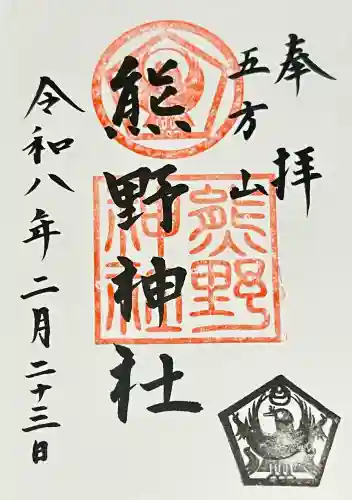 奉拝
五方山
熊野神社
令和八年二月二十三日
熊野
神社